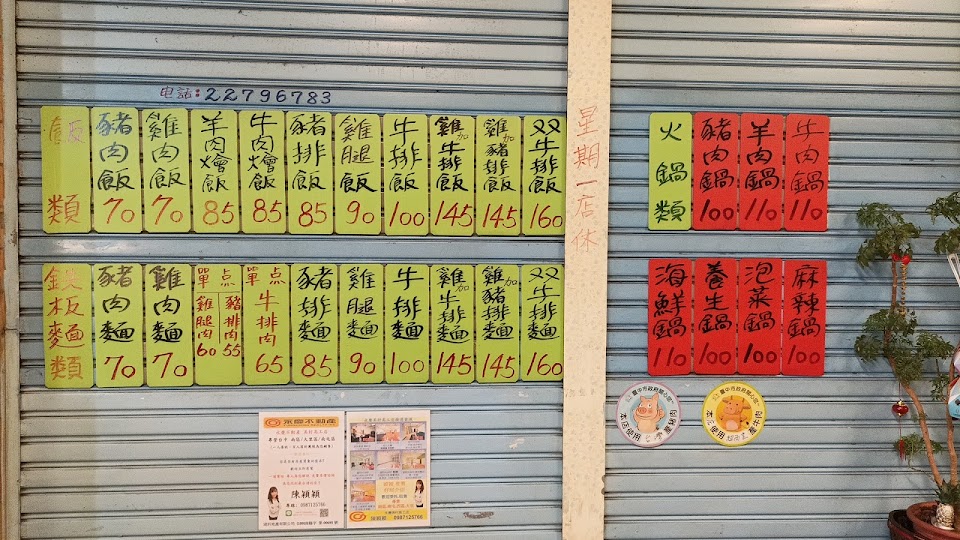 电話:22796783
飯類
豬肉飯 70
雞肉飯 70
羊肉燴飯 85
牛肉燴飯 85
豬排飯 85
雞腿飯 90
牛排飯 100
雞加牛排飯 145
雞加豬排飯 145
双牛排飯 160
鉄板麵類
豬肉麵 70
雞肉麵 70
單点
雞腿肉 60
豬排肉 55
單点
牛排肉 65
豬排麵 85
雞腿麵 90
牛排麵 100
雞加牛排麵 145
雞加豬排麵 145
双牛排麵 160
星期一店休
火鍋類
豬肉鍋 100
羊肉鍋 110
牛肉鍋 110
海鮮鍋 110
養生鍋 100
泡菜鍋 100
麻辣鍋 100
臺中市政府關心您
本店使用 台灣豬肉
臺中市政府關心您
本店使用
牛肉
永慶不動產
陳穎穎
0987125766
0987125766